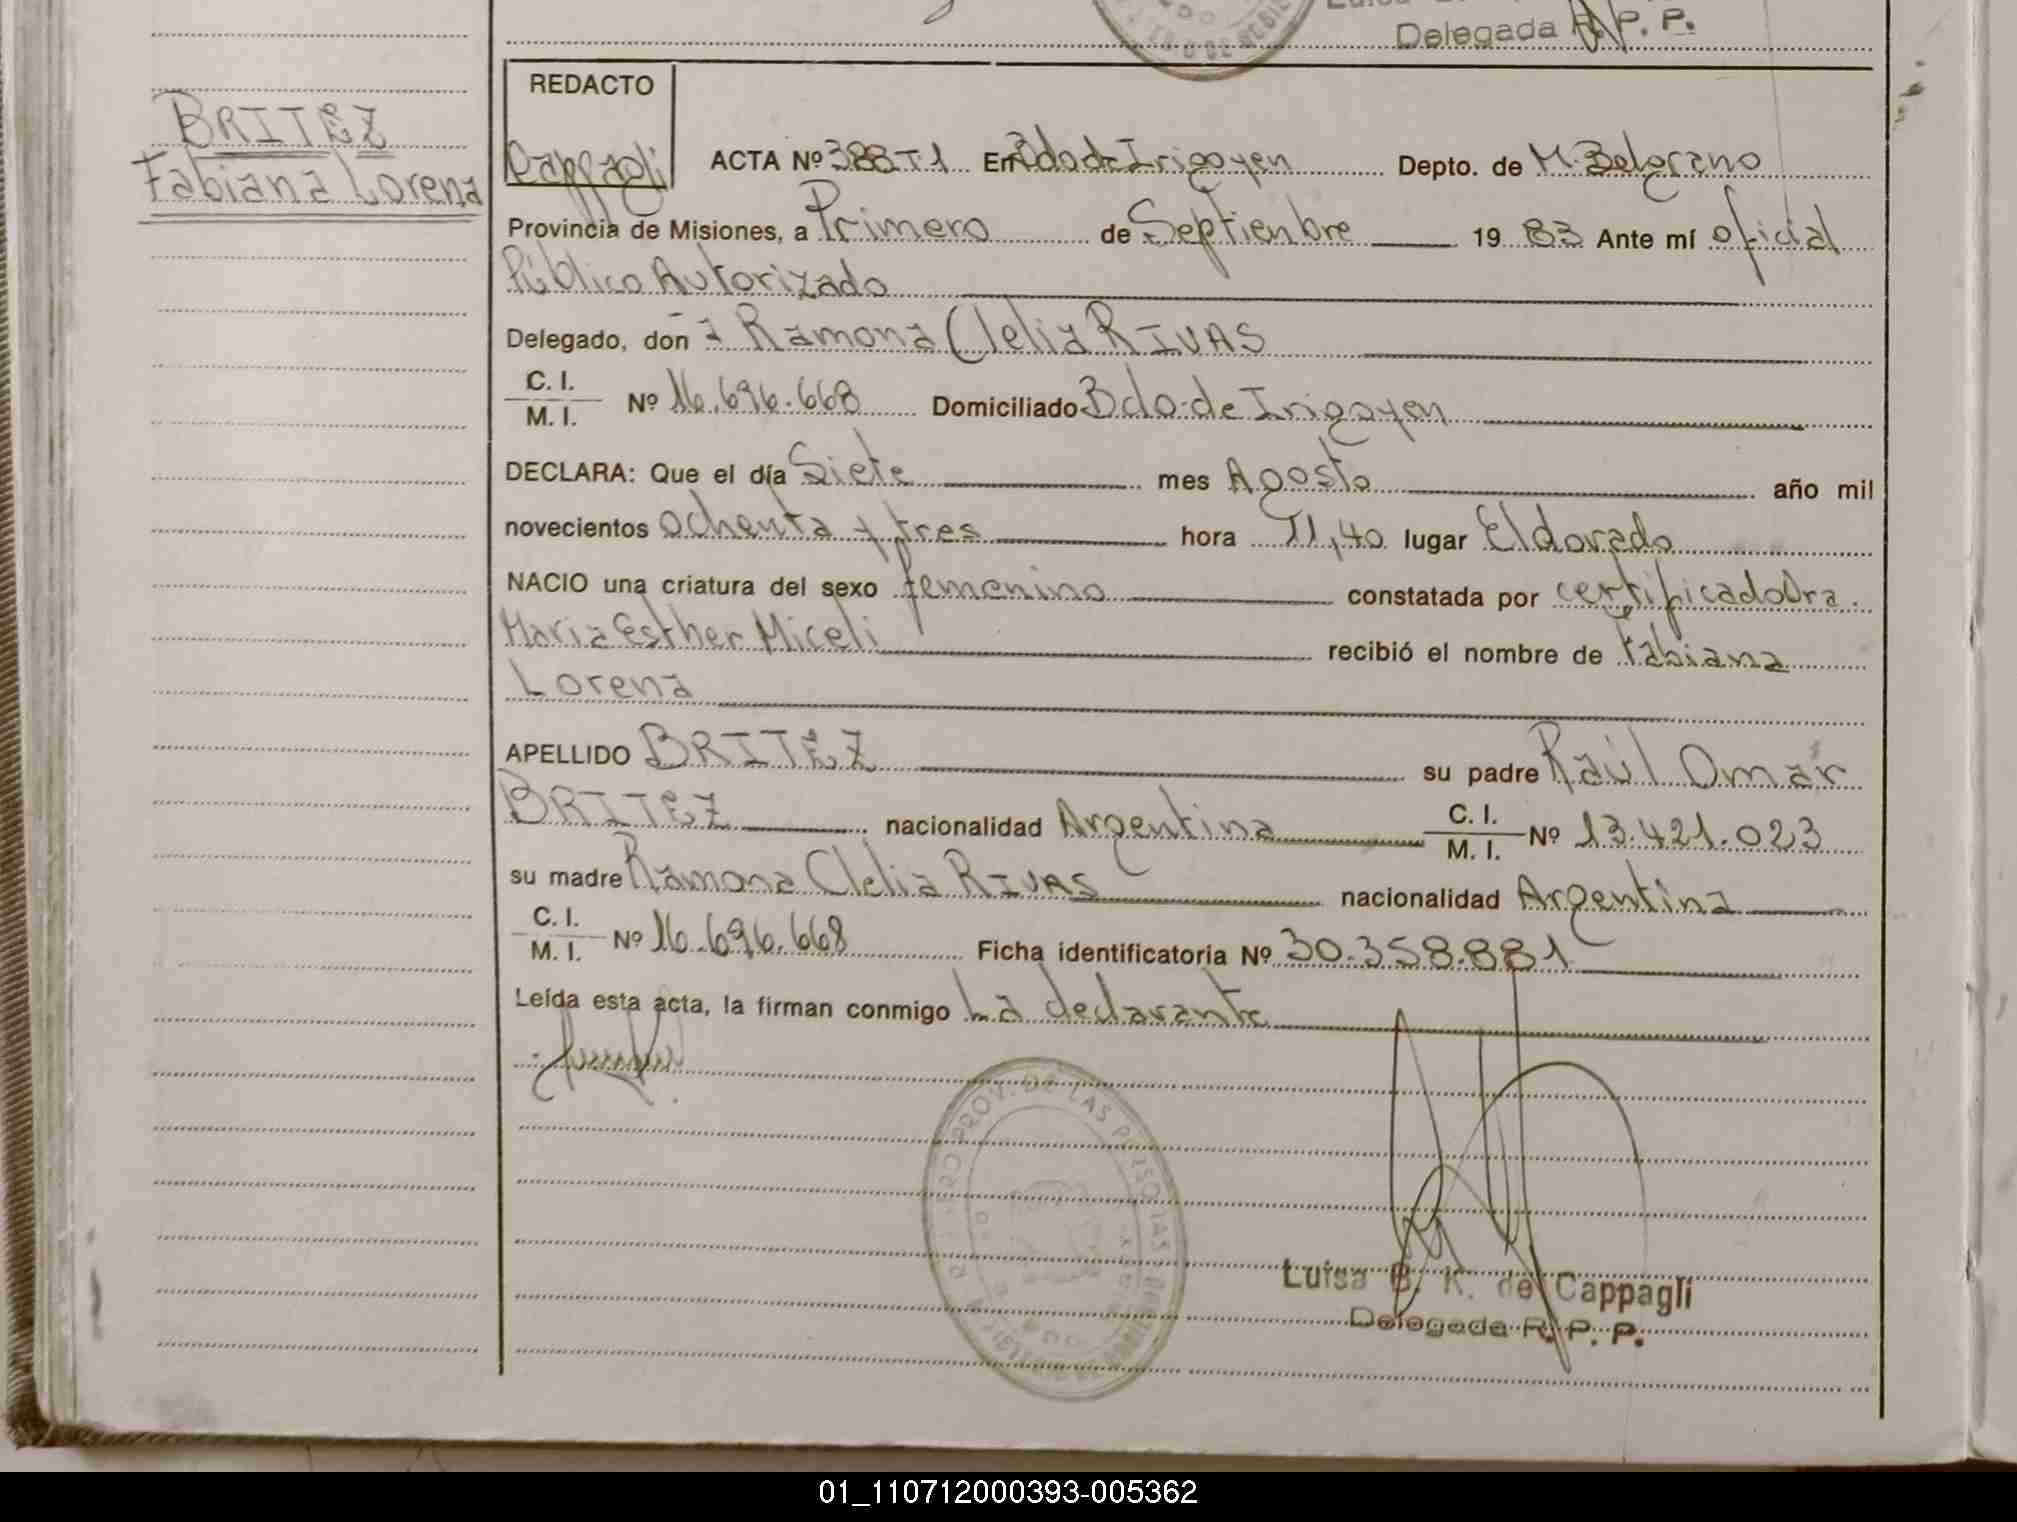 Delegada R. P. P.
BRITEZ
Fabiana Lorena
REDACTO
Cappagli
ACTA Nº 388 T.1 En Bdo de Irigoyen Depto. de M. Belgrano
Provincia de Misiones, a Primero de Septienbre 19 83 Ante mí oficial
Público Autorizado
Delegado, don a Ramona Clelia RIVAS
C. I.
M. I. Nº 16.696.668 Domiciliado Bdo. de Irigoyen
DECLARA: Que el día Siete mes Agosto año mil
novecientos ochenta y tres hora 11,40 lugar Eldorado
NACIO una criatura del sexo femenino constatada por certificado Dra.
Maria Esther Miceli recibió el nombre de Fabiana
Lorena
APELLIDO BRITEZ su padre Raúl Omar
BRITEZ nacionalidad Argentina C. I.
M. I. Nº 13.421.023
su madre Ramona Clelia RIVAS nacionalidad Argentina
C. I.
M. I. Nº 16.696.668 Ficha identificatoria Nº 30.358.881
Leída esta acta, la firman conmigo La declarante
PROV. DE LAS PERSONAS
Luisa B. K. de Cappagli
Delegada R. P. P.
01_110712000393-005362